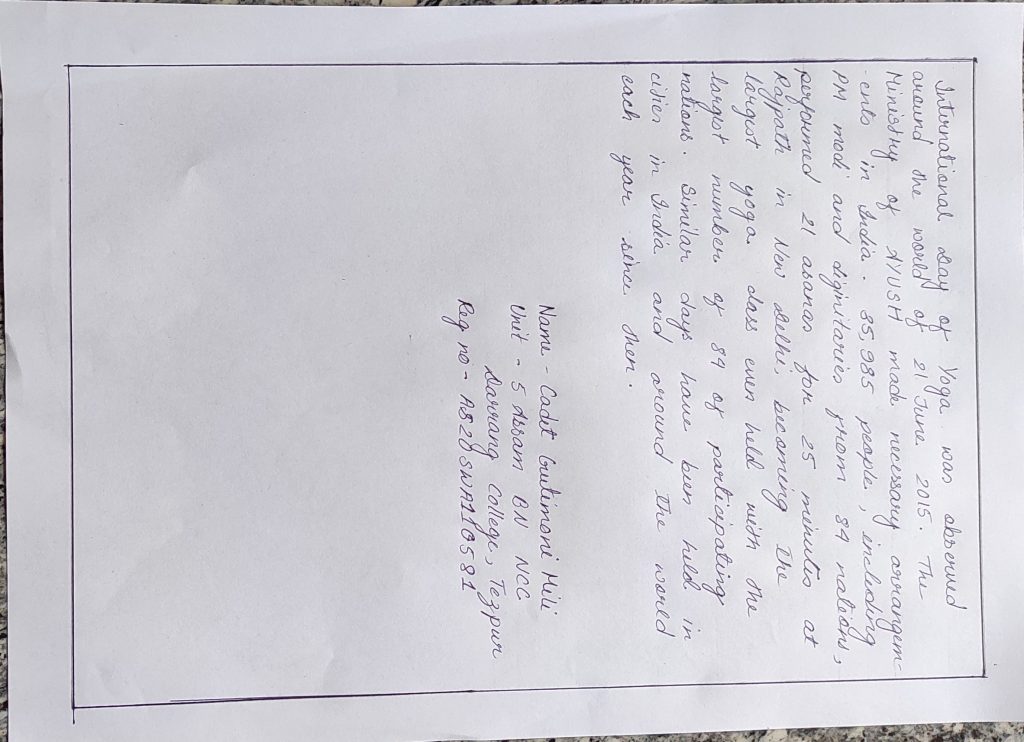 International day of Yoga was observed
around the world of 21 June 2015. The
Ministry of AYUSH made necessary arrangem-
-ents in India. 35,985 people, including
PM modi and diginitaries from 84 nations,
performed 21 asanas for 25 minutes at
Rajpath in New delhi, becoming the
largest yoga class even held with the
largest number of 84 of participating
nations. Similar days have been held in
cities in India and around the world
each year since then.
Name - Cadet Gulimoni Mili
Unit - 5 Assam BN NCC
Darrang College, Tezpur
Reg no - AS20SWA110581